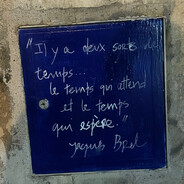 "Il y a deux sorts de
temps...
le temps qui attend
et le temps
qui espère."
Jacques Brel